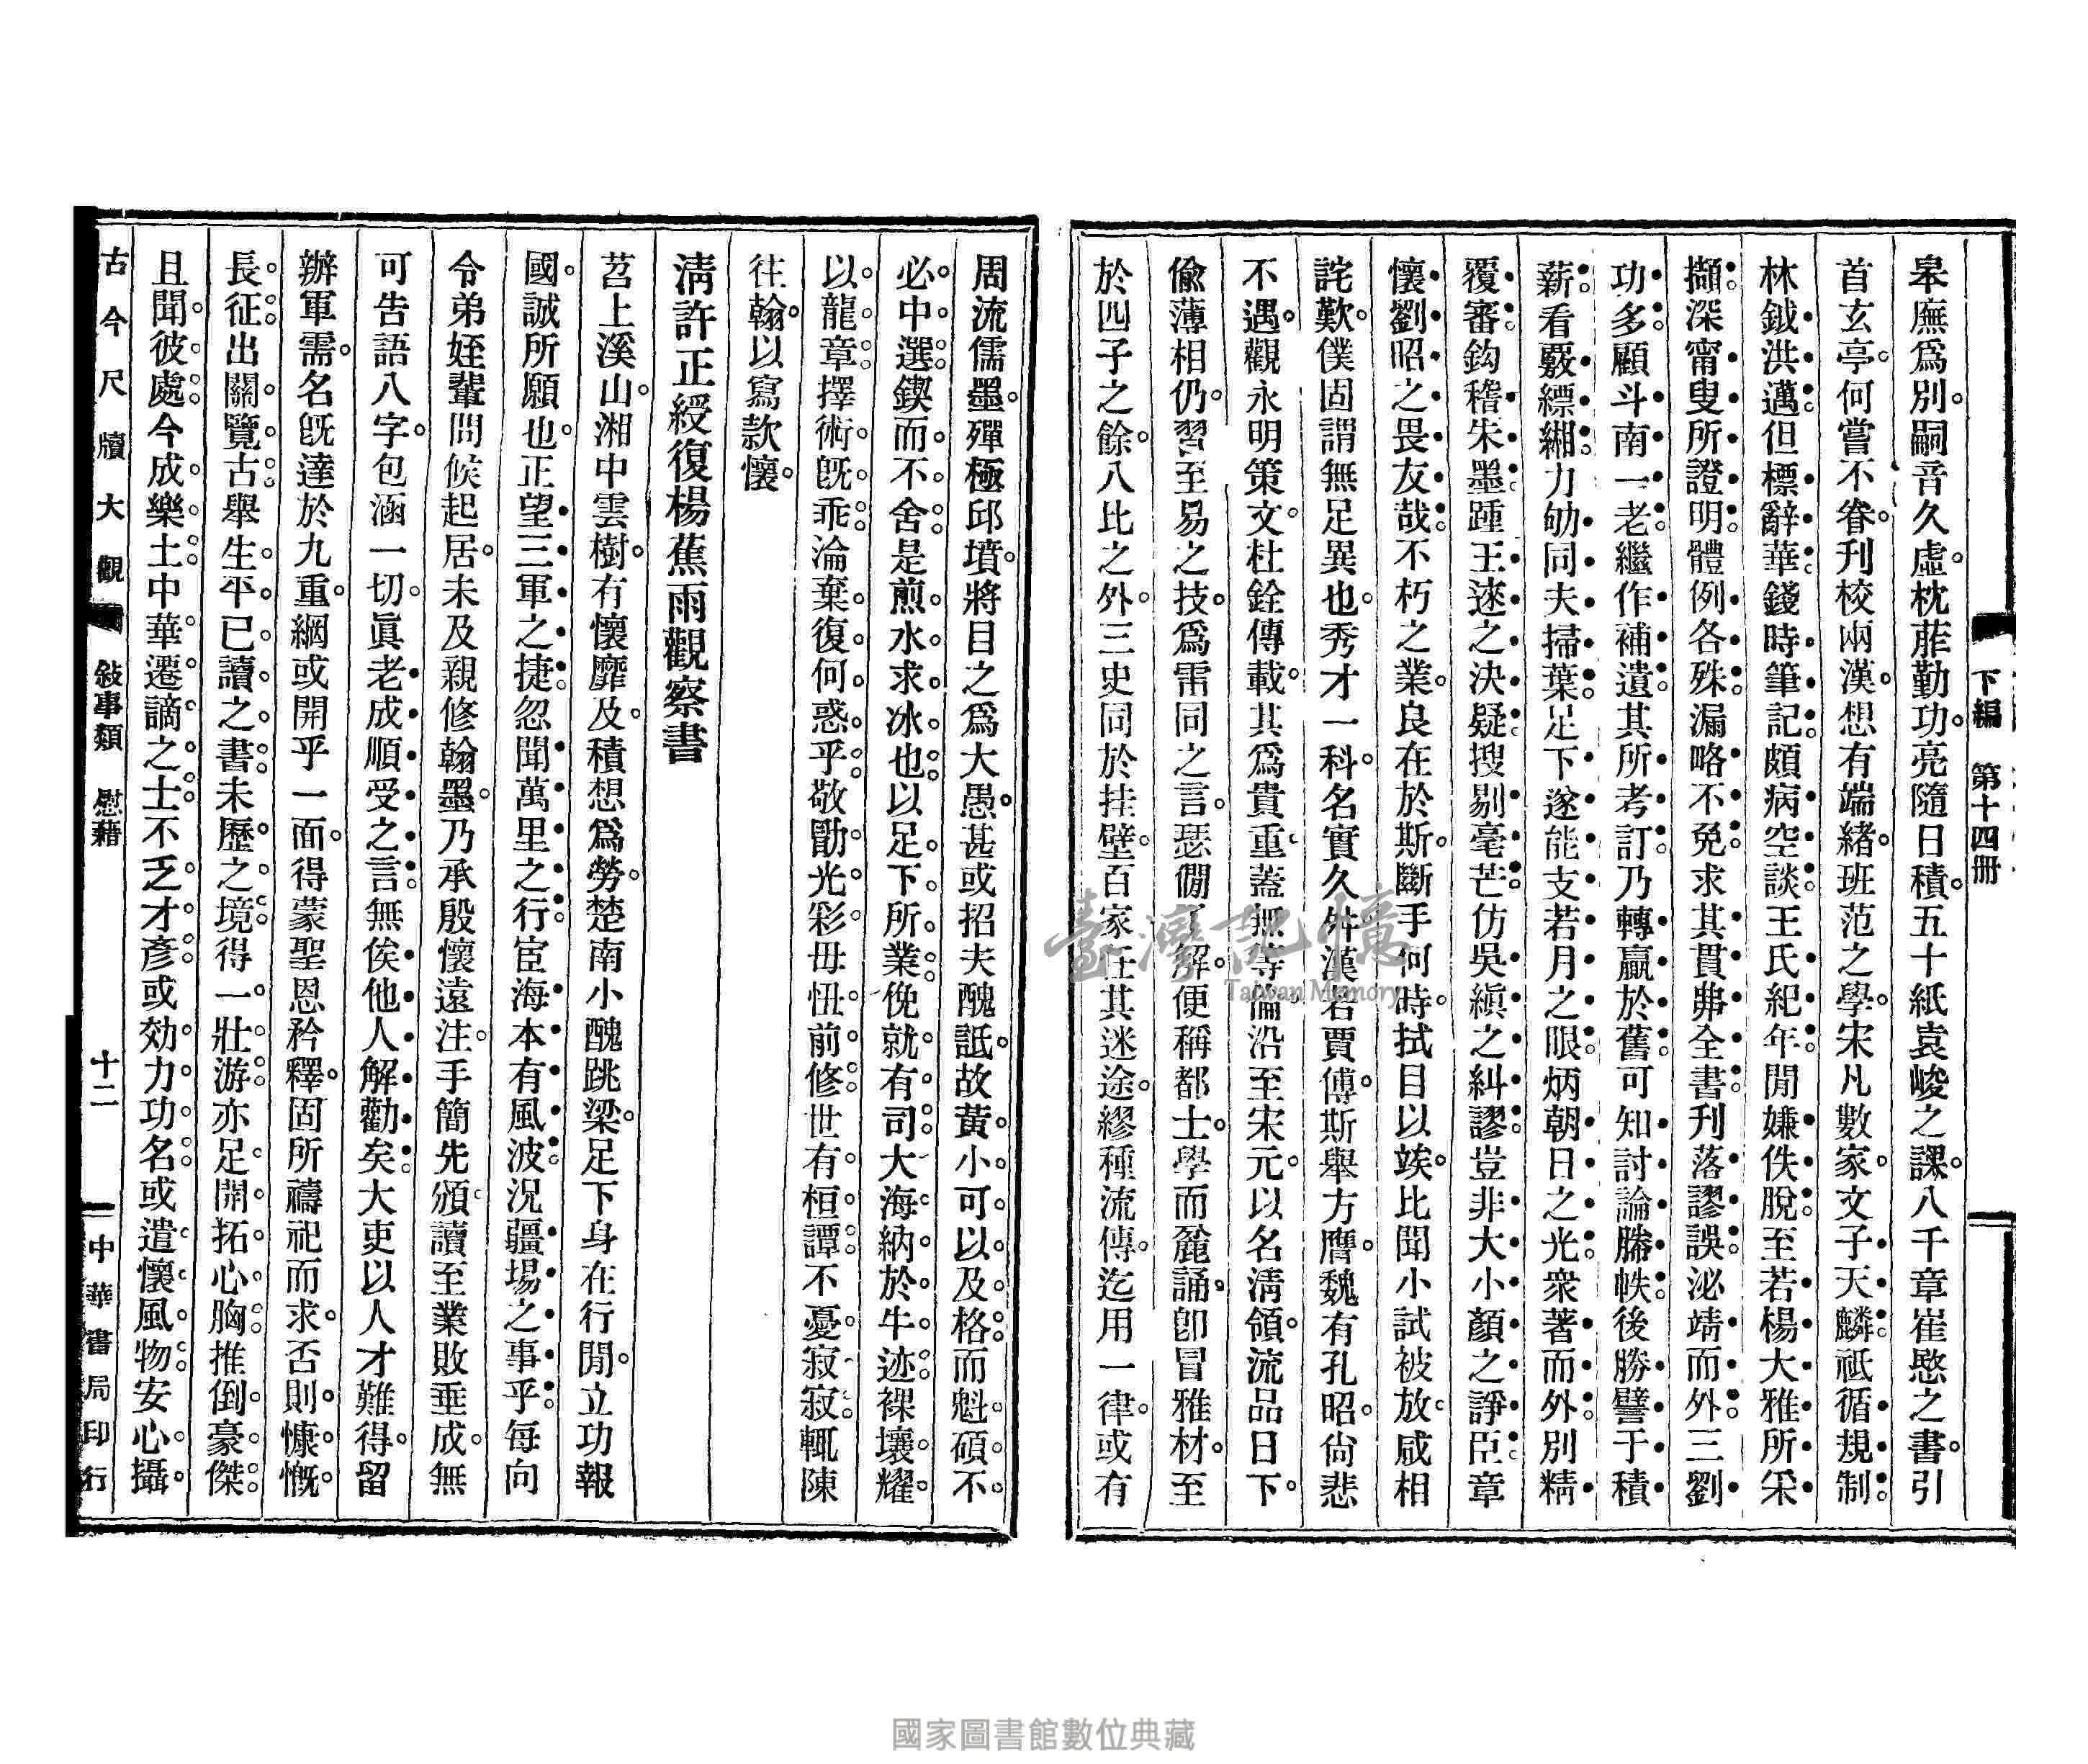 下編 第十四册
皋廡爲別。嗣音久虛。枕葄勤功。亮隨日積。五十紙袁峻之課。八千章崔愍之書。引
首玄亭。何嘗不眷。刊校兩漢。想有端緒。班范之學。宋凡數家。文子天麟。祇循規制。
林鉞洪邁。但標辭華。錢時筆記。頗病空談。王氏紀年。閒嫌佚脫。至若楊大雅所采
擷深甯叟所證明。體例各殊。漏略不免。求其貫弗全書。刋落謬誤。泌靖而外。三劉
功多。顧斗南一老。繼作補遺。其所考訂。乃轉贏於舊。可知討論縢帙。後勝譬于積
薪。看覈縹緗。力劬同夫掃葉。足下遂能支若月之眼。炳朝日之光。衆著而外。別精
覆審。鈎稽朱墨。踵王逨之決疑。搜剔毫芒。仿吳縝之糾謬。豈非大小顏之諍臣。章
懷劉昭之畏友哉。不朽之業。良在於斯。斷手何時。拭目以竢。比聞小試被放。咸相
詫歎。僕固謂無足異也。秀才一科。名實久舛。漢若賈傅。斯舉方膺。魏有孔昭。尙悲
不遇。觀永明策文。杜銓傳載。其爲貴重。蓋無等倫。沿至宋元。以名淸領。流品日下。
偸薄相仍。習至易之技。爲雷同之言。瑟僩了解。便稱都士。學而麄誦。卽冒雅材。至
於四子之餘。八比之外。三史同於挂壁。百家任其迷途。繆種流傳。迄用一律。或有
周流儒墨。殫極邱墳。將目之爲大愚。甚或招夫醜詆。故黃小可以及格。而魁碩不
必中選。鍥而不舍。是煎水求冰也。以足下所業。俛就有司。大海納於牛迹。裸壤耀
以龍章。擇術旣乖。淪棄復何惑乎。敬勖光彩。毋忸前修。世有桓譚。不憂寂寂。輒陳
往翰。以寫款懷。
淸許正綬復楊蕉雨觀察書
苕上溪山。湘中雲樹。有懷靡及。積想爲勞。楚南小醜跳梁。足下身在行閒。立功報
國。誠所願也。正望三軍之捷。忽聞萬里之行。宦海本有風波。況疆場之事乎。每向
令弟姪輩問候起居。未及親修翰墨。乃承殷懷遠注。手簡先頒。讀至業敗垂成。無
可告語八字。包涵一切。眞老成順受之言。無俟他人解勸矣。大吏以人才難得。留
辦軍需。名旣達於九重。綱或開乎一面。得蒙聖恩矜釋。固所禱祀而求。否則慷慨
長征。出關覽古。舉生平已讀之書。未歷之境。得一壯游。亦足開拓心胸。推倒豪傑。
且聞彼處今成樂土。中華遷謫之士。不乏才彥。或効力功名。或遣懷風物。安心攝
古今尺牘大觀 敍事類 慰藉 十二 中華書局印行
臺灣記憶
Taiwan Memory
國家圖書館數位典藏